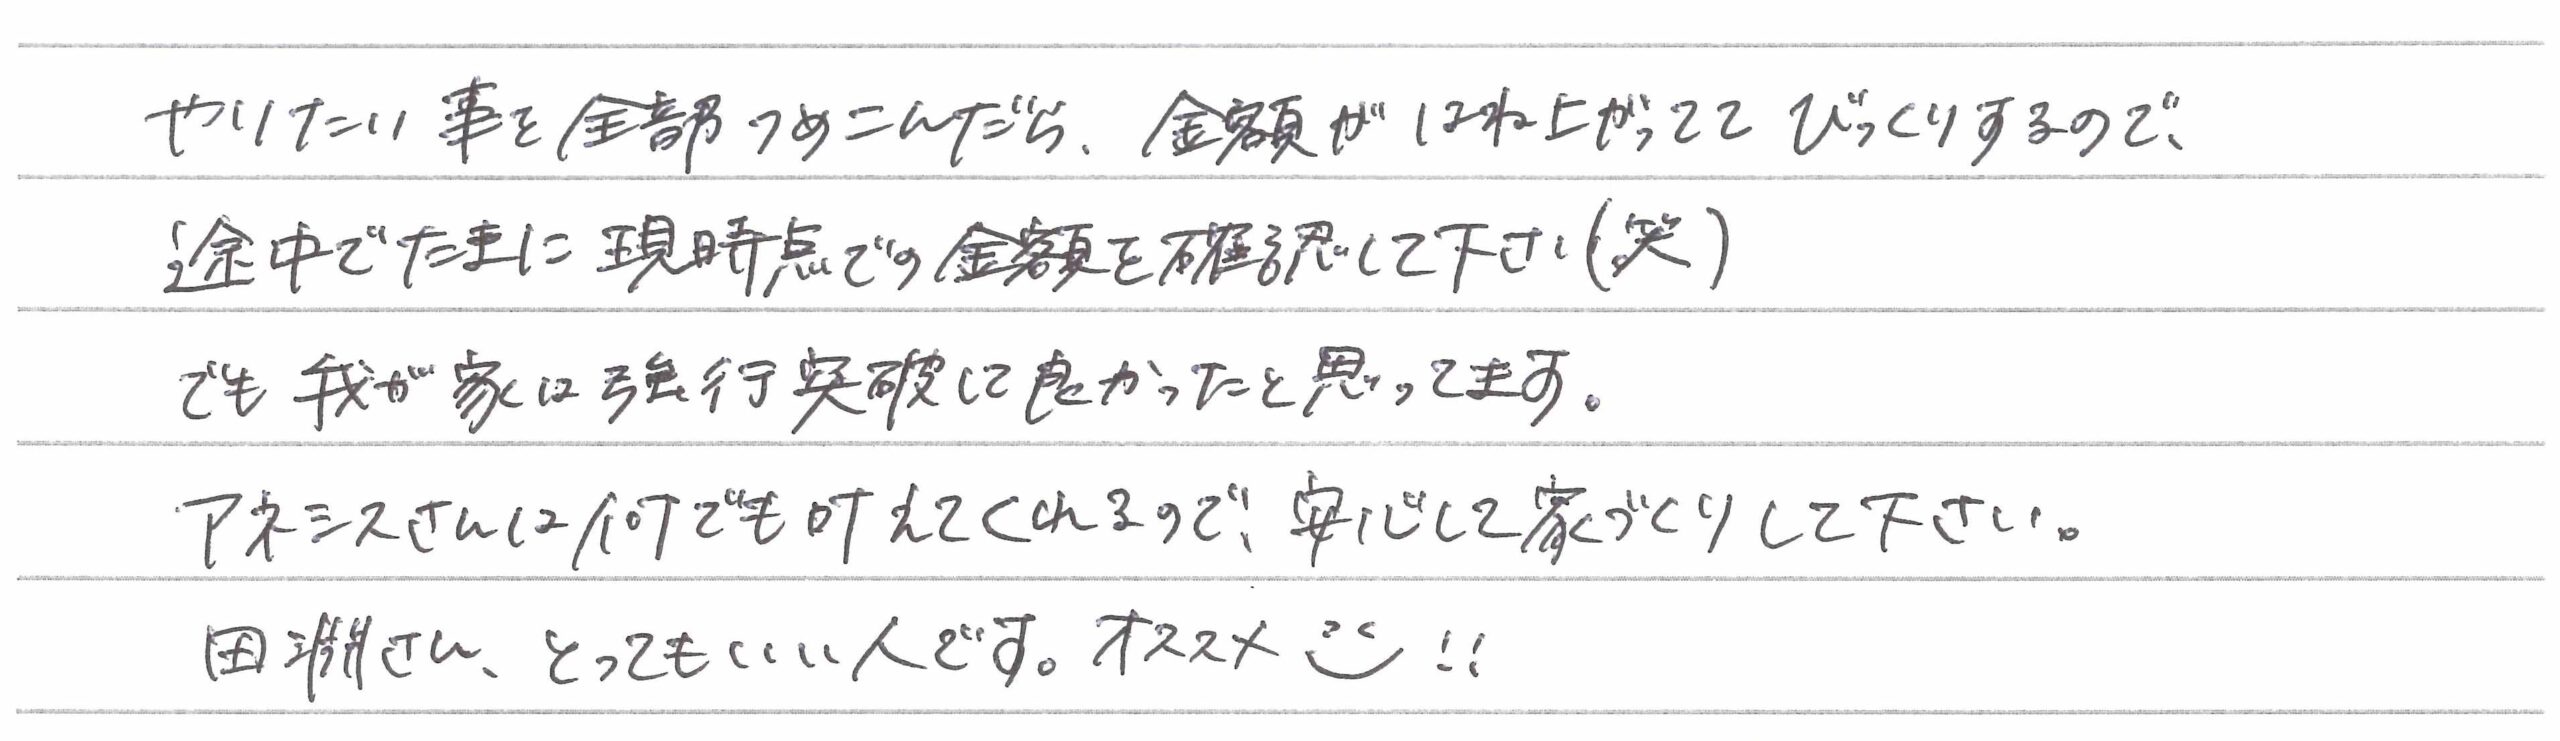 やりたい事を全部つめこんだら、金額がはね上がってて びっくりするので、
途中でたまに現時点での金額を確認して下さい(笑)
でも我が家は強行突破して良かったと思ってます。
アネシスさんは何でも叶えてくれるので、安心して家づくりして下さい。
田渊さん、とってもいい人です。オススメ !!